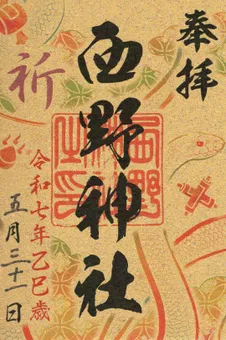 奉拝
西野神社
祈
令和七年乙巳歳
五月三十一日